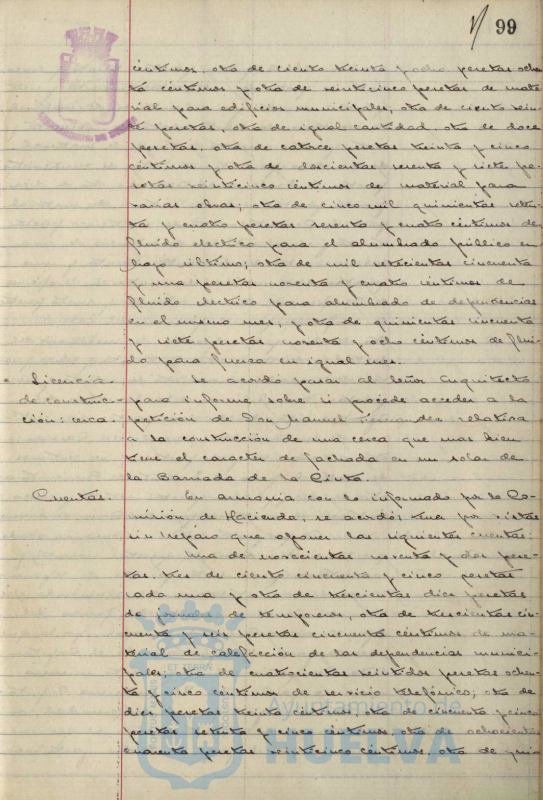 V/ 99
céntimos, otra de ciento treinta y ocho pesetas ochen-
ta céntimos y otra de veinticinco pesetas de mate-
rial para edificios municipales, otra de ciento vein-
te pesetas, otra de igual cantidad, otra de doce
pesetas, otra de catorce pesetas treinta y cinco
céntimos y otra de doscientas sesenta y siete pe-
setas veinticinco céntimos de material para
varias obras; otra de cinco mil quinientas seten-
ta y cuatro pesetas sesenta y cuatro céntimos de
fluido electrico para el alumbrado público en
Mayo último; otra de mil setecientas cincuenta
y una pesetas noventa y cuatro céntimos de
fluido electrico para alumbrado de dependencias
en el mismo mes, y otra de quinientas cincuenta
y siete pesetas noventa y ocho céntimos de flui-
do para fuerza en igual mes.
Licencia Se acordó pasar al Señor Arquitecto
de construc- para informe sobre si procede acceder a la
ción: cerca. petición de Don Manuel Fernandez relativa
a la construcción de una cerca que mas bien
tiene el caracter de fachada en un solar de
la Barriada de la Cinta.
Cuentas. En armonia con lo informado por la Co-
misión de Hacienda, se acordó; por vistas
sin reparo que oponer las siguientes cuentas:
Una de novecientas noventa y dos pese-
tas, tres de ciento cincuenta y cinco pesetas
cada una y otra de trescientas diez pesetas
de jornales de temporeros, otra de trescientas cin-
cuenta y seis pesetas cincuenta céntimos de ma-
terial de calefacción de las dependencias munici-
pales; otra de cuatrocientas veintidos pesetas ochen-
ta y cinco céntimos de servicio telefónico; otra de
diez pesetas treinta céntimos, otra de cincuenta y cinco
pesetas setenta y cinco céntimos, otra de ochocientas
cuarenta pesetas veinticinco céntimos, otra de quin
Ayuntamiento de
HUELVA